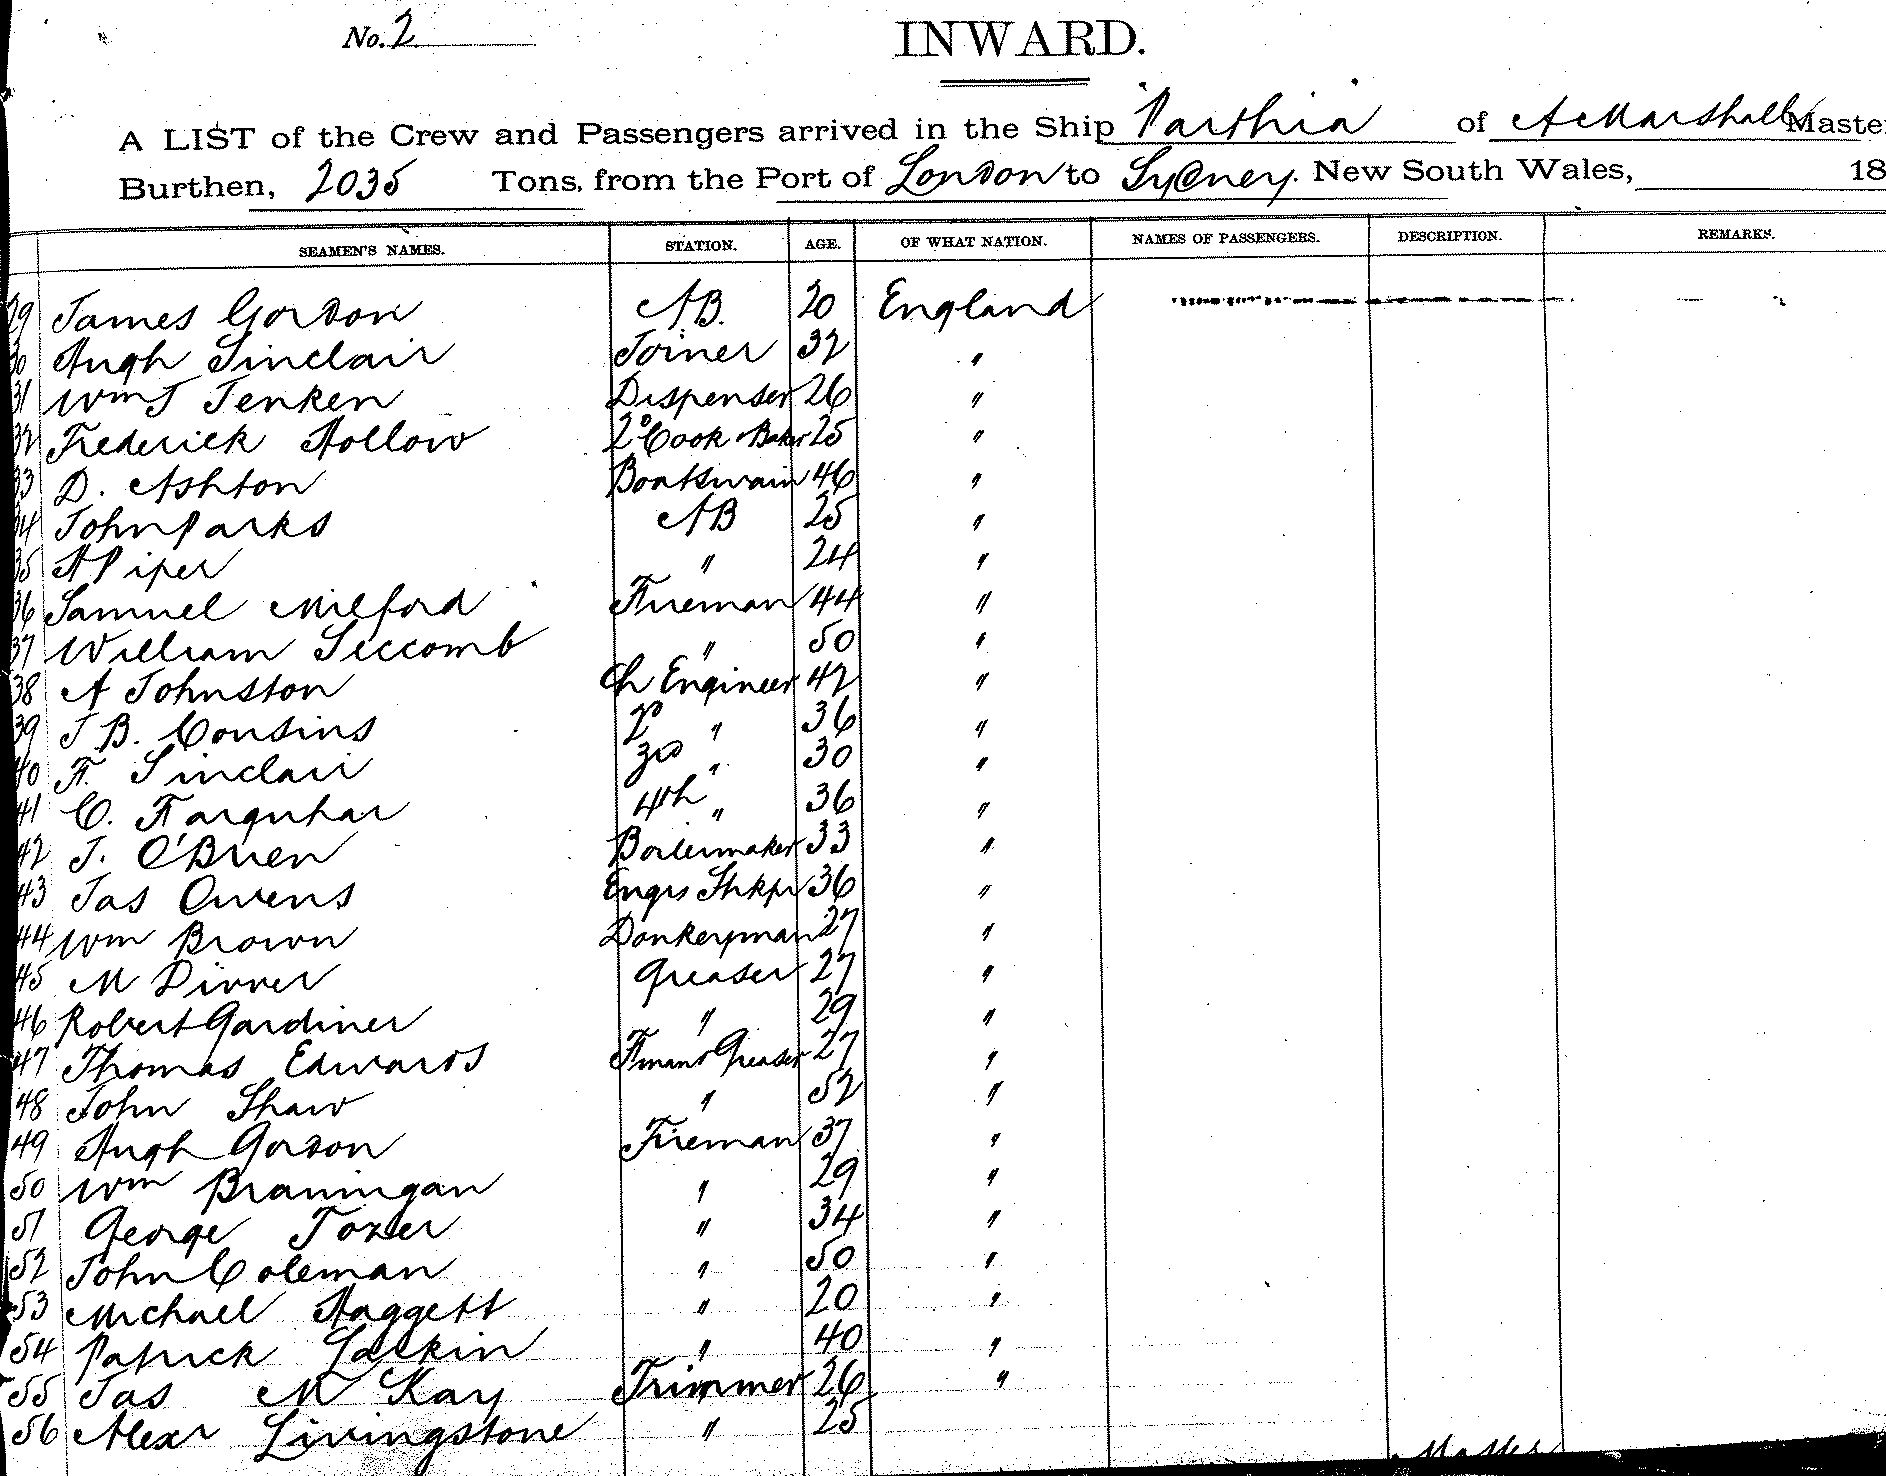 No. 2
INWARD.
A LIST of the Crew and Passengers arrived in the Ship Parthia of A Marshall Maste
Burthen, 2035 Tons, from the Port of London to Sydney. New South Wales, 18
SEAMEN'S NAMES. STATION. AGE. OF WHAT NATION. NAMES OF PASSENGERS. DESCRIPTION. REMARKS.
29 James Gordon AB. 20 England
30 Hugh Sinclair Joiner 32 "
31 Wm J Jenken Dispenser 26 "
32 Frederick Hollow 2° Cook & Baker 25 "
33 D. Ashton Boatswain 46 "
34 John Parks AB 25 "
35 A Piper " 24 "
36 Samuel Milford Fireman 44 "
37 William Seccomb " 50 "
38 A Johnston Ch Engineer 42 "
39 J B. Cousins 2D " 36 "
40 F. Sinclair 3rd " 30 "
41 C. Farquhar 4th " 36 "
42 J. O'Brien Boilermaker 33 "
43 Jas Owens Engrs Stkpr 36 "
44 Wm Brown Donkeyman 27 "
45 M Dwyer Greaser 27 "
46 Robert Gardiner " 29 "
47 Thomas Edwards Fman & Greaser 27 "
48 John Shaw " 52 "
49 Hugh Gordon Fireman 37 "
50 Wm Brannigan " 29 "
51 George Tozer " 34 "
52 John Coleman " 50 "
53 Michael Haggett " 20 "
54 Patrick Larkin " 40 "
55 Jas Mc Kay Trimmer 26 "
56 Alexr Livingstone " 25
Master